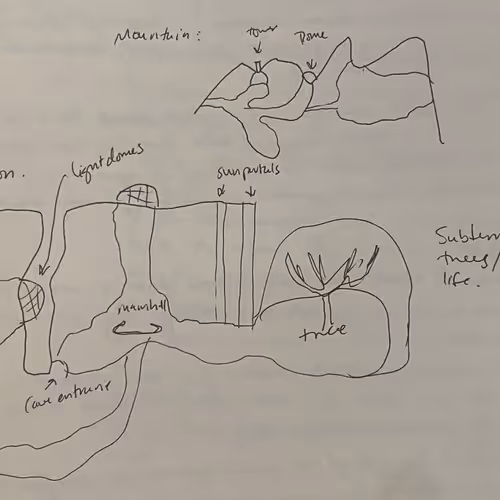 Mountain:
tower
Dome
on.
Light domes
sun portals
Subterr
trees/
life.
mainhall
tree
Cave entrance